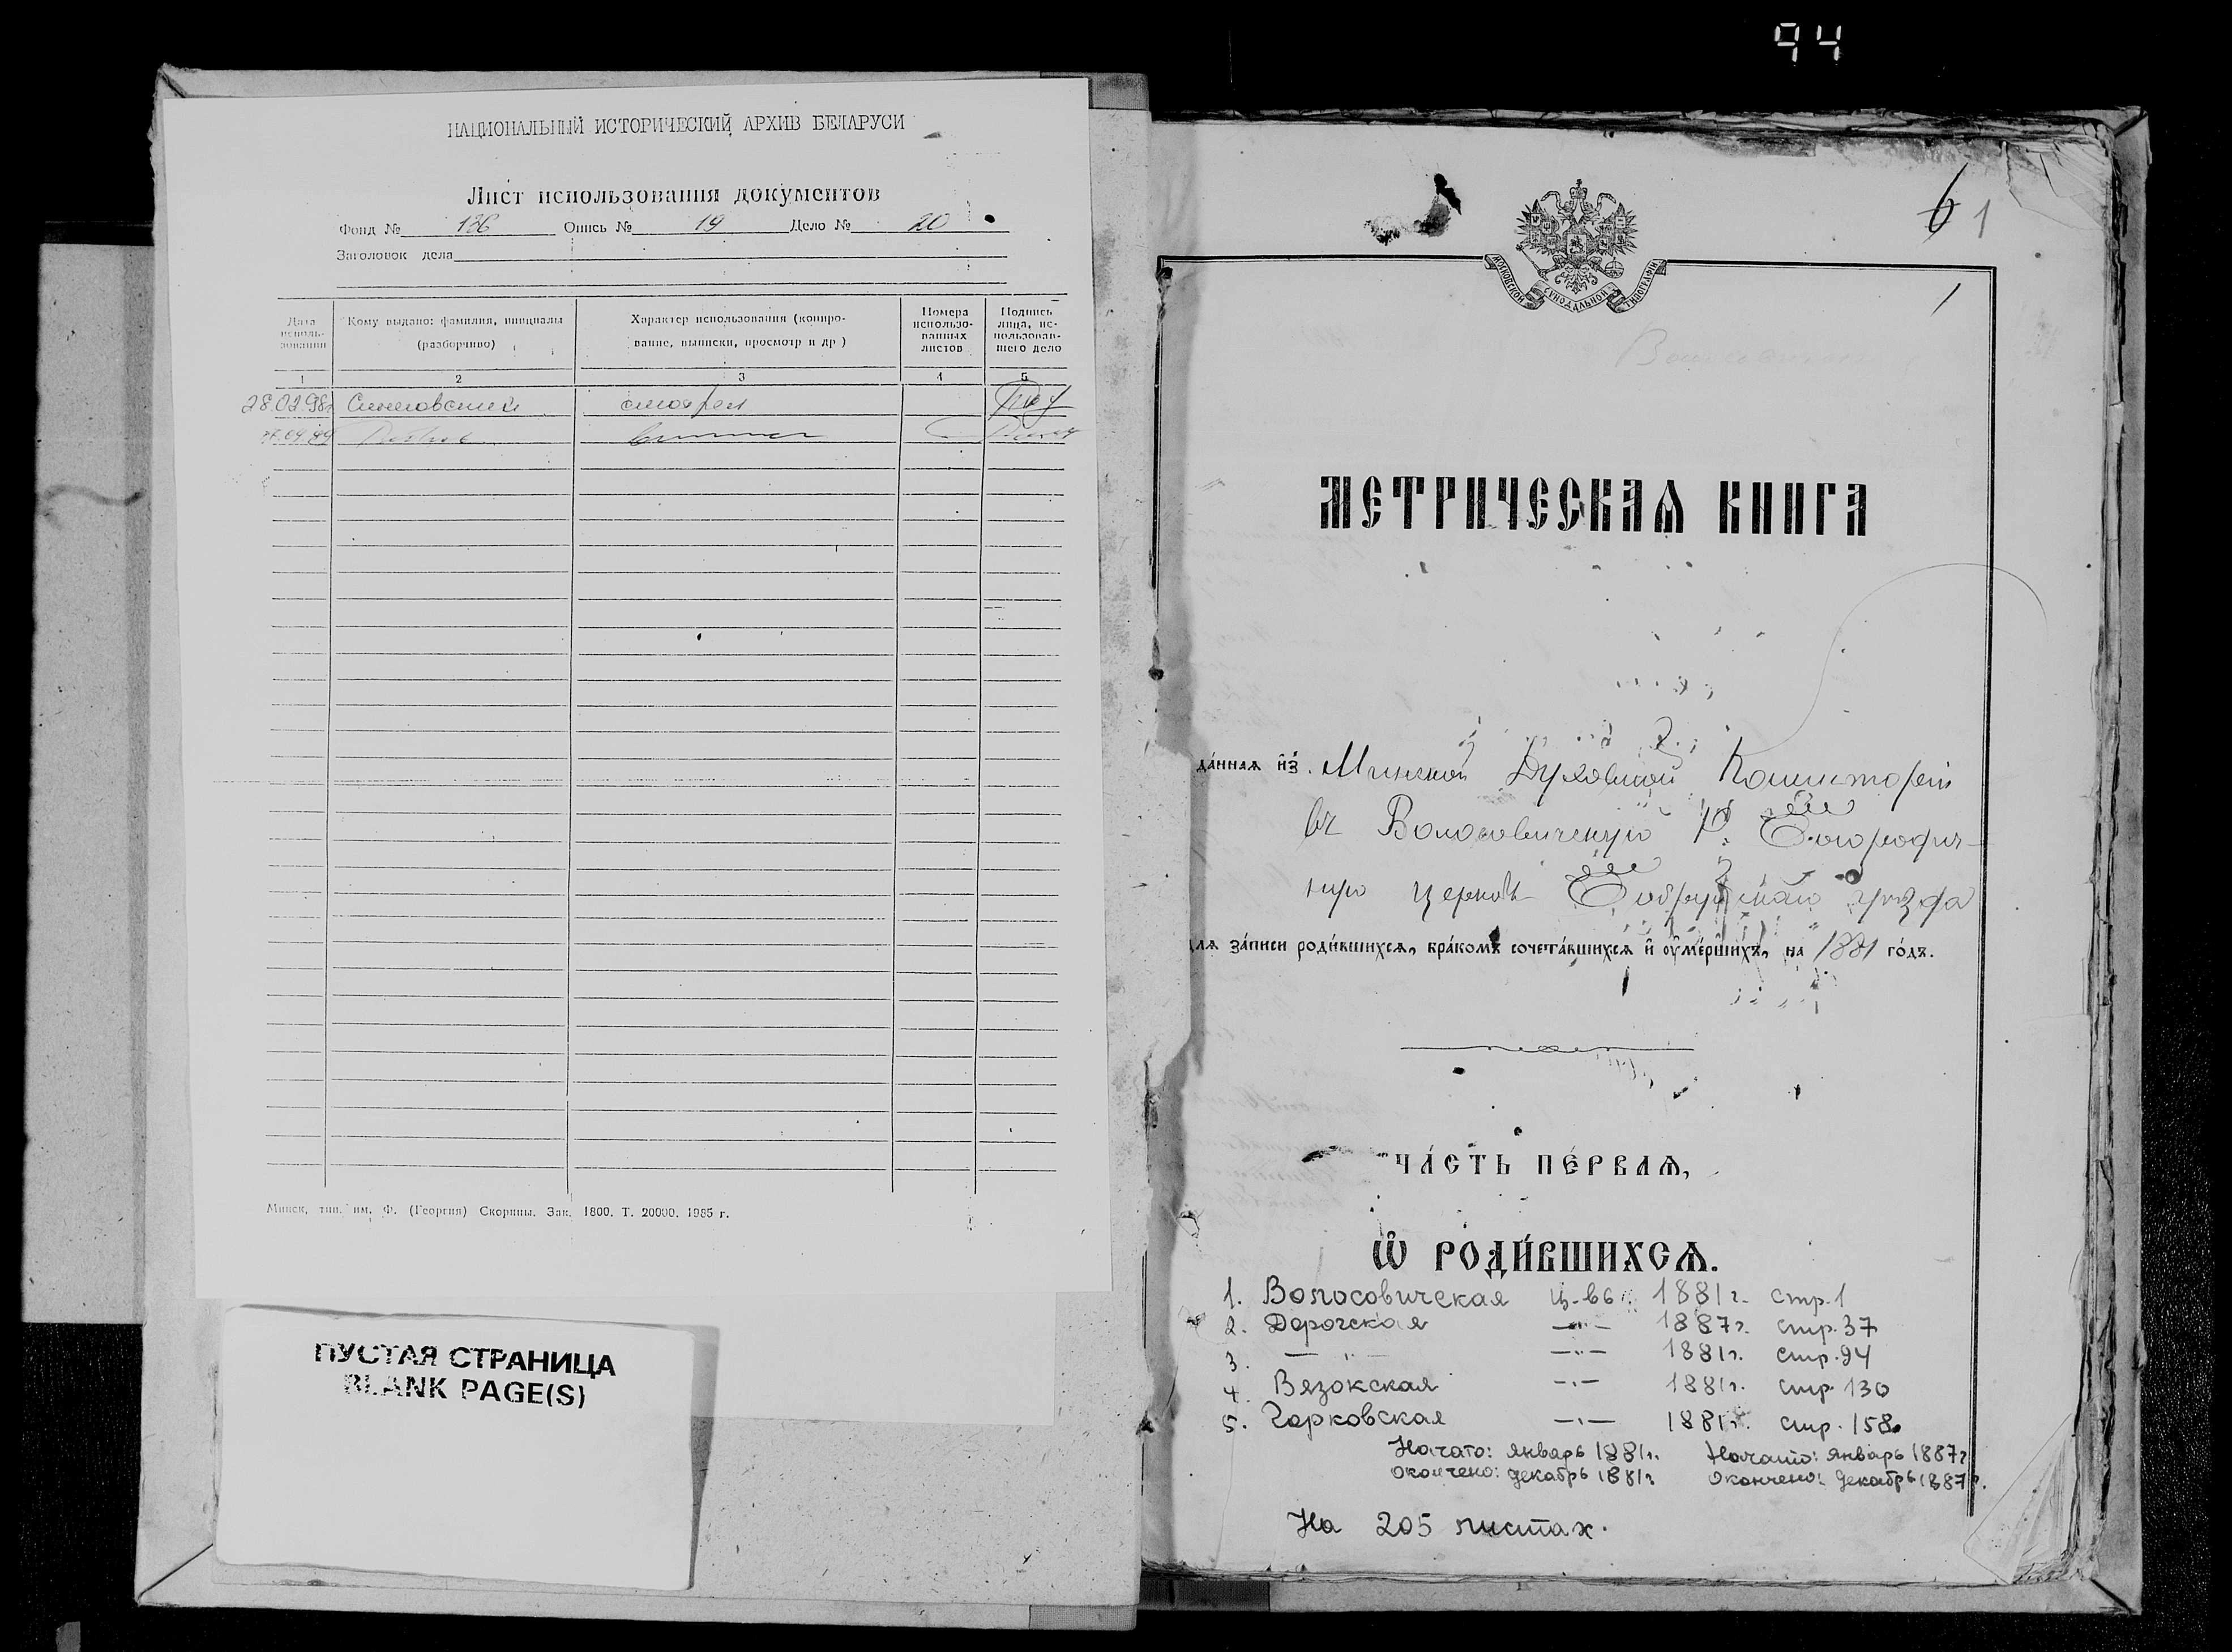 94
НАЦИОНАЛЬНЫЙ ИСТОРИЧЕСКИЙ АРХИВ БЕЛАРУСИ
Лист использования документов
Фонд № 136 Опись № 19 Дело № 20
Заголовок дела
Дата исполь-зования
Кому выдано: фамилия, инициалы (разборчиво)
Характер использования (копиро-вание, выписки, просмотр и др )
Номера использо-ванных листов
Подпись лица, ис-пользовав-шего дело
1 2 3 4 5
28.02.98г смотрел
Минск, тип. им. Ф. (Георгия) Скорины. Зак. 1800. Т. 20000. 1985 г.
ПУСТАЯ СТРАНИЦА
BLANK PAGE(S)
6 1
МОСКОВСКОЙ СѴНОДАЛЬНОЙ ТИПОГРАФІИ
1
МЕТРИЧЕСКАѦ КНИГА
да́ннаѧ и҆з̾ Минской Духовной Консисторіи
въ Волосовичскую Р. Богородич-
ную церковь Бобруйскаго уѣзда
для за́писи роди́вшихсѧ, бра́комъ сочета́вшихсѧ и҆ ᲂу҆ме́ршихъ, на 1881 го́дъ.
ЧА́СТЬ ПЕ́РВАѦ,
Ѽ РОДИ́ВШИХСѦ.
1. Волосовичская ц-вь 1881г. стр.1
2. Дорогская —"— 1887г. стр.37
3. —"— —"— 1881г. стр.94
4. Вязокская —"— 1881г. стр.130
5. Горковская —"— 1881г. стр.158
Начато: январь 1881г. Начато: январь 1887г
Окончено: декабрь 1881г Окончено: декабрь 1887г.
На 205 листах.